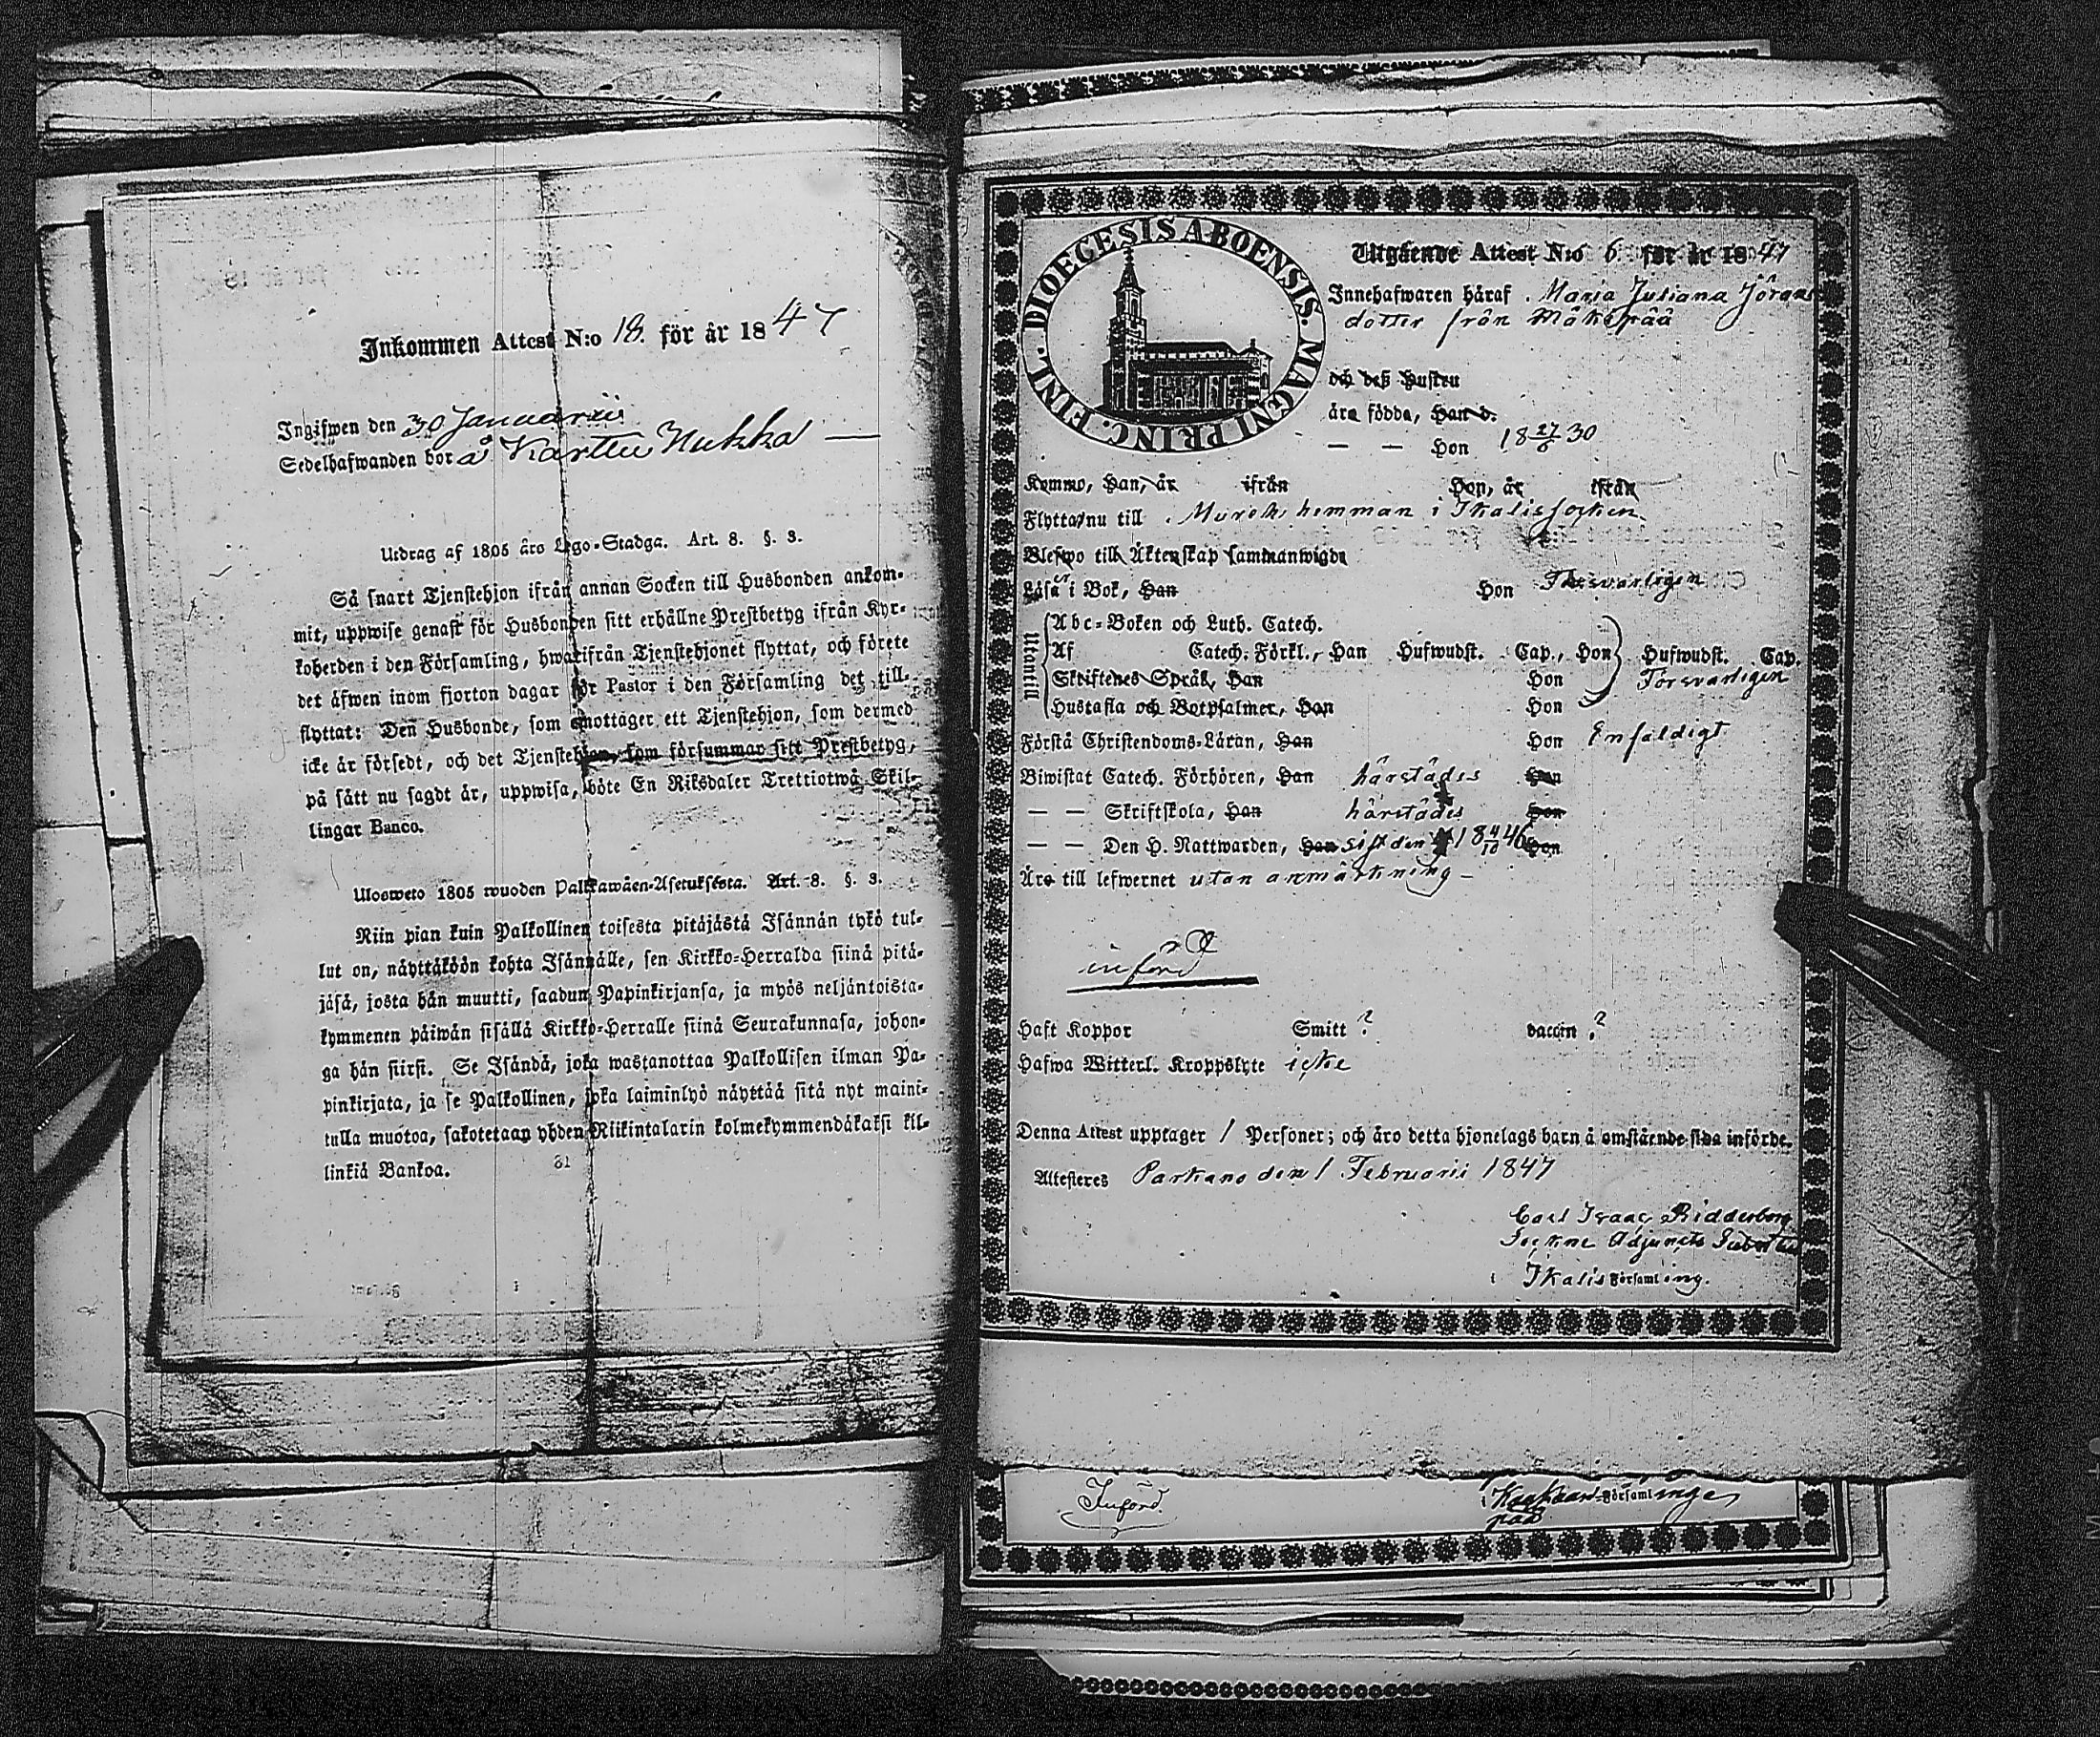 Inkommen Attest N:o 18. för år 1847
Ingifwen den 30 Januarii
Sedelhafwanden bor å Karttu Nukka —
Utdrag af 1805 års Lego-Stadga. Art. 8. §. 3.
Så snart Tjenstehjon ifrån annan Socken till Husbonden ankom-
mit, uppwise genast för Husbonden sitt erhållne Prestbetyg ifrån Kyr-
koherden i den Församling, hwarifrån Tjenstehjonet flyttat, och förete
det äfwen inom fjorton dagar för Pastor i den Församling det till-
flyttat: Den Husbonde, som emottager ett Tjenstehjon, som dermed
icke är försedt, och det Tjenstehjon, som försummar sitt Prestbetyg,
på sätt nu sagdt är, uppwisa, böte En Riksdaler Trettiotwå Skil-
lingar Banco.
Ulosweto 1805 wuoden Palkkawäen-Asetuksesta. Art. 8. §. 3.
Niin pian kuin Palkollinen toisesta pitäjästä Isännän tykö tul-
lut on, näyttäköön kohta Isännälle, sen Kirkko-Herralda siinä pitä-
jäsä, josta hän muutti, saadun Papinkirjansa, ja myös neljäntoista-
kymmenen päiwän sisällä Kirkko-Herralle siinä Seurakunnasa, johon-
ga hän siirsi. Se Isändä, joka wastanottaa Palkollisen ilman Pa-
pinkirjata, ja se Palkollinen, joka laiminlyö näyttää sitä nyt maini-
tulla muotoa, sakotetaan yhden Riikintalarin kolmekymmendäkaksi kil-
linkiä Bankoa.
DIOECESIS ABOENSIS. MAGNI PRINC. FINL.
Utgående Attest N:o 6 för år 1847
Innehafwaren häraf Maria Juliana Jörans
dotter från Mäkipää
och deß Hustru
äro födda, Han d.
— — Hon 18 27/6 30
Kommo, Han, år ifrån Hon, år ifrån
Flytta nu till Murek hemman i Ikalis socken
Blefwo till Äktenskap sammanwigde
Läsa i Bok, Han Hon Försvarligen
Utantill
Abc-Boken och Luth. Catech.
Af Catech. Förkl., Han Hufwudst. Cap., Hon Hufwudst. Cap.
Skriftenes Språk, Han Hon Försvarligen
Hustafla och Botpsalmer, Han Hon
Förstå Christendoms-Läran, Han Hon Enfaldigt
Biwistat Catech. Förhören, Han härstädes Hon
— — Skriftskola, Han härstädes Hon
— — Den H. Nattwarden, Han sist den 18 4/10 46 Hon
Äro till lefwernet utan anmärkning —
införd
Haft Koppor Smitt? vaccin?
Hafwa Witterl. Kroppslyte icke
Denna Attest upptager 1 Personer; och äro detta hjonelags barn å omstående sida införde.
Attesteres Parkano den 1 Februarii 1847
Carl Isaac Ridderborg
Sockne Adjuncts
i Ikalis Församling.
Införd
i Församlinge